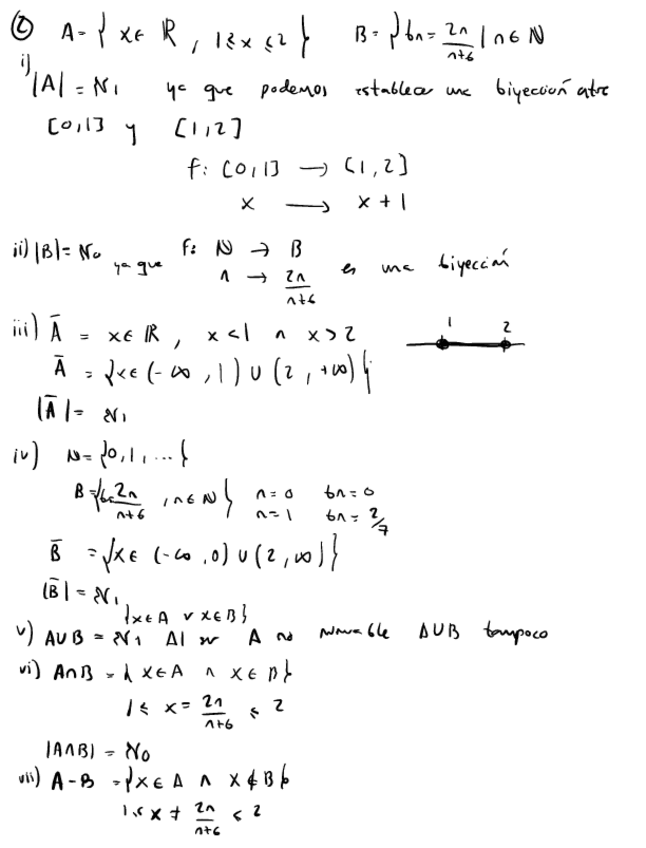 ② A = { x ∈ ℝ , 1 ≤ x ≤ 2 } B = { bn = 2n/n+6 | n ∈ ℕ
i) |A| = ℵ1 ya que podemos establecer una biyección entre
[0,1] y [1,2]
f: [0,1] → [1,2]
x → x + 1
ii) |B| = ℵ0 ya que f: ℕ → B
n → 2n/n+6 es una biyección
iii) Ā = x ∈ ℝ , x < 1 ∧ x > 2 1 2
Ā = { x ∈ (-∞ , 1) ∪ (2 , +∞) }
|Ā| = ℵ1
iv) ℕ = {0, 1, ... }
B = { bn 2n/n+6 , n ∈ ℕ } n = 0 bn = 0
n = 1 bn = 2/7
B̄ = { x ∈ (-∞ , 0) ∪ (2, ∞) }
|B̄| = ℵ1
{ x ∈ A ∨ x ∈ B }
v) A∪B = ℵ1 Al ser A no numerable A∪B tampoco
vi) A∩B = { x ∈ A ∧ x ∈ B }
1 ≤ x = 2n/n+6 ≤ 2
|A∩B| = ℵ0
vii) A - B = { x ∈ A ∧ x ∉ B }
1 ≤ x ≠ 2n/n+6 ≤ 2